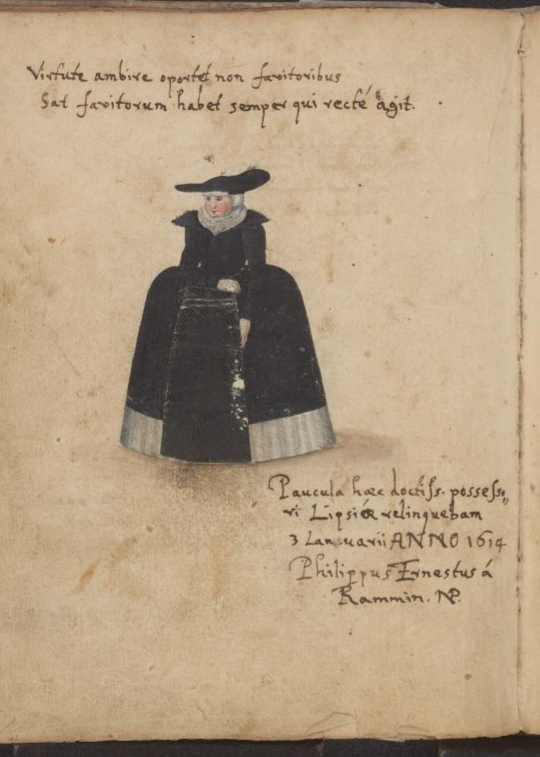 Virtute ambire oportet non favitoribus
Sat favitorum habet semper qui recté agit.
Paucula hæc doctiss. possesso,,
ri Lipsiæ relinquebam
3 Ianuarii ANNO 1614
Philippus Ernestus á
Rammin. NP.